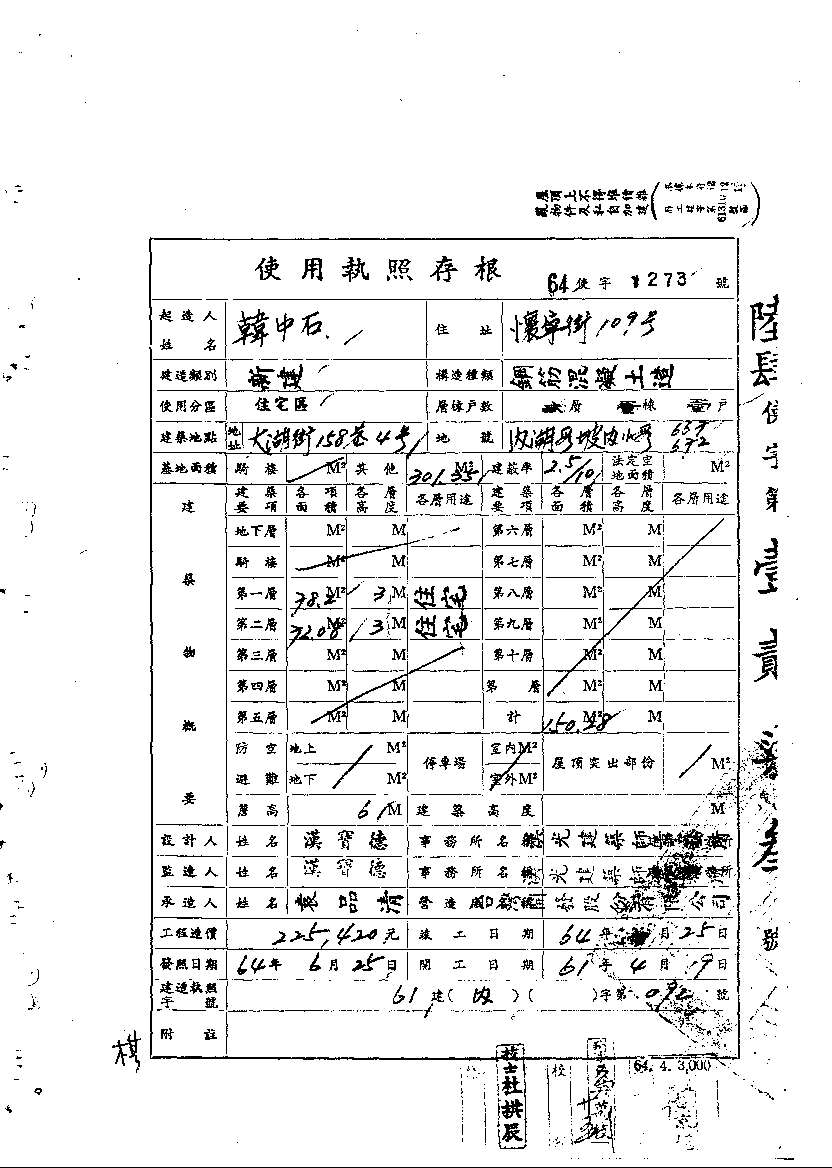 屋頂上不得堆積雜
物件及私自加建
使用執照存根
64使字 1273 號
起造人姓名 韓中石 住址 懷寧街109號
建造類別 新建 構造種類 鋼筋混凝土造
使用分區 住宅區 層棟戶數 層 棟 戶
建築地點 地址 大湖街158巷4號 地號 內湖
基地面積 騎樓 M² 其他 301.35 M² 建蔽率 2.5/10 法定空地面積 M²
建築要項 各項面積 各層高度 各層用途 建築要項 各層面積 各層高度 各層用途
建築物概要
地下層 M² M 第六層 M² M
騎樓 M² M 第七層 M² M
第一層 78.2 M² 3 M 住宅 第八層 M² M
第二層 72.08 M² 3 M 住宅 第九層 M² M
第三層 M² M 第十層 M² M
第四層 M² M 第 層 M² M
第五層 M² M 計 150.28 M²
防空避難 地上 M² 地下 M² 停車場 室內M² 室外M² 屋頂突出部份 M²
簷高 6 M 建築高度 M
設計人 姓名 漢寶德 事務所名稱 漢光建築師事務所
監造人 姓名 漢寶德 事務所名稱 漢光建築師事務所
承造人 姓名 袁品清 營造 開發股份有限公司
工程造價 225,420元 竣工日期 64年 月25日
發照日期 64年6月25日 開工日期 61年4月19日
建造執照字號 61建(內)( )字第 092 號
附註
陸肆使字第壹貳 叁號
技士杜拱辰
校
64. 4. 3,000